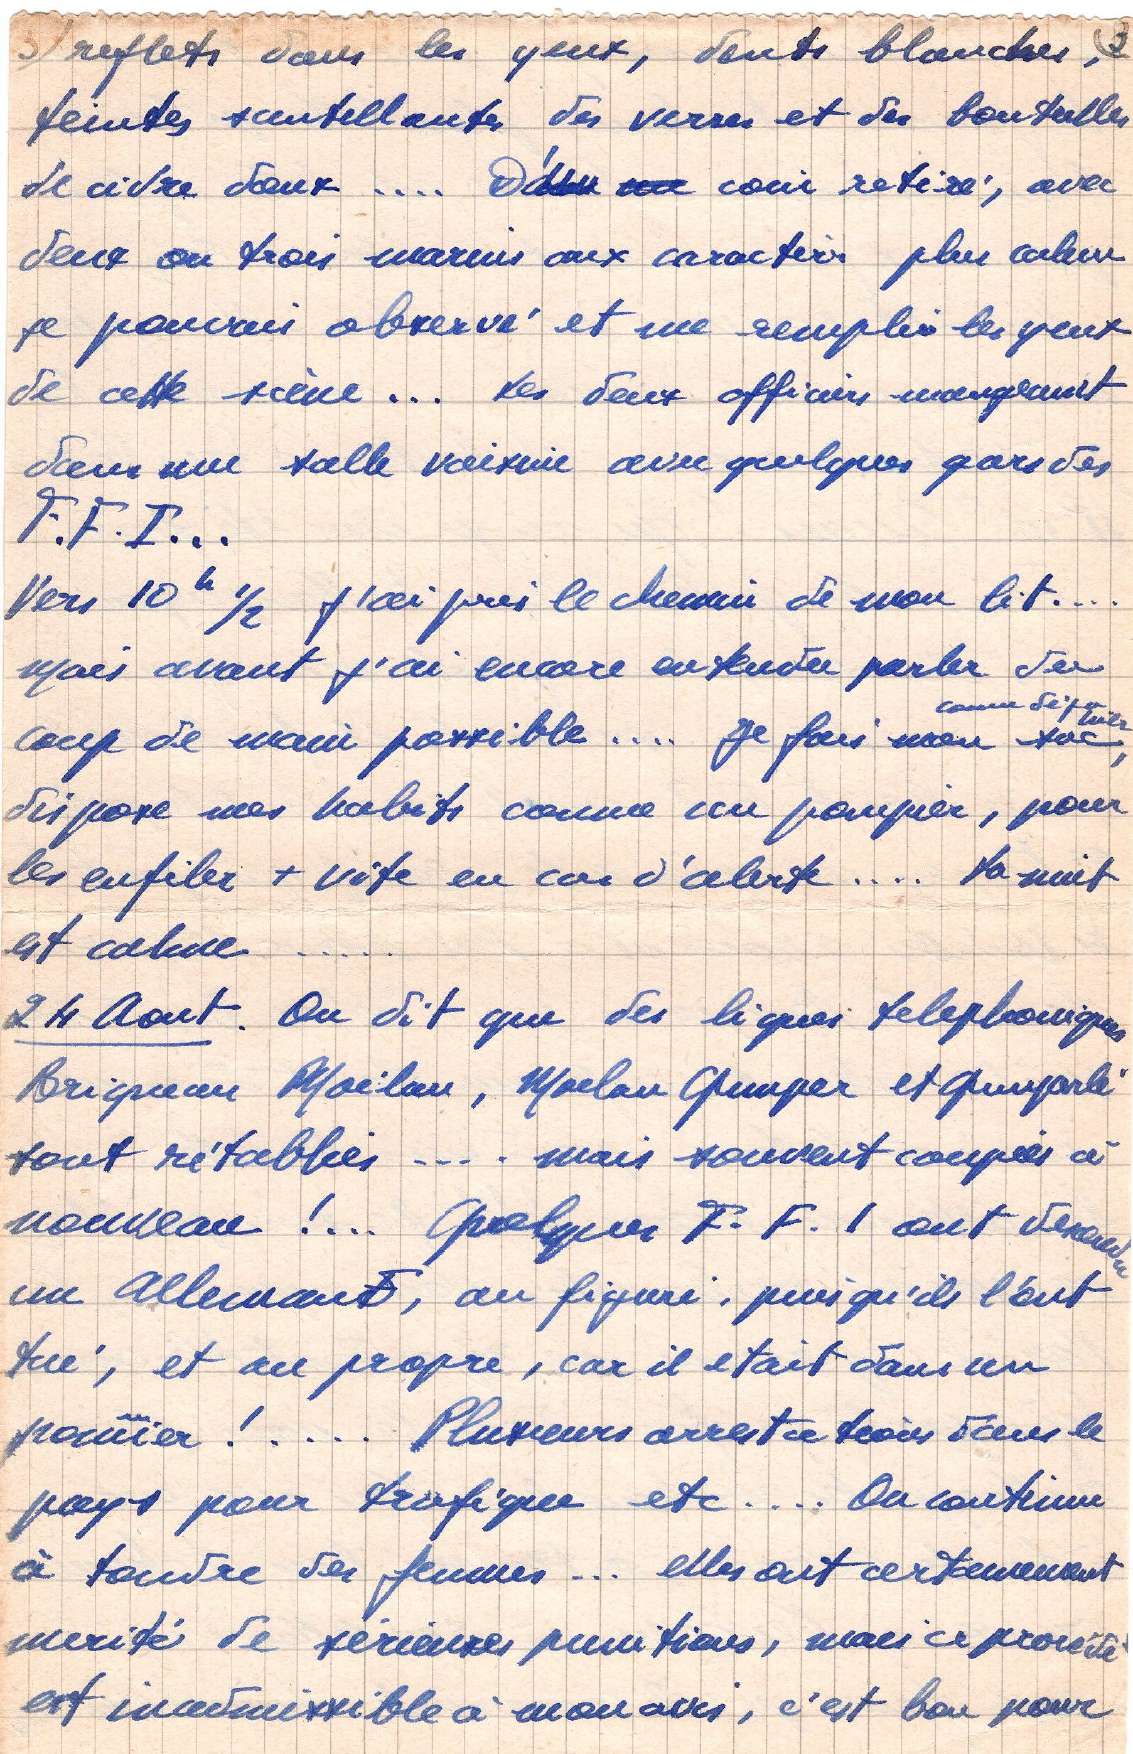 3) reflets dans les yeux, dents blanches, (3
teintes scintillantes des verres et des bouteilles
de cidre doux .... D'un coin retiré, avec
deux ou trois marins aux caractères plus calme
je pouvais observé et me remplir les yeux
de cette scène ... Les deux officiers mangeaient
dans une salle voisine avec quelques gars des
F.F.I...
Vers 10 h 1/2 j'ai pris le chemin de mon lit....
Mais avant j'ai encore entendu parler du
coup de main possible .... Je fais mon sac,
dispose mes habits comme un pompier, pour
les enfiler + vite en cas d'alerte .... La nuit
est calme .....
24 Aout. On dit que des lignes telephoniques
Brigneau Moëlan, Moelan Quimper et Quimperlé
sont rétablies .... mais souvent coupées à
nouveau !... Quelques F.F.I ont descendu
un Allemand, au figuré, puisqu'ils l'ont
tué, et au propre, car il etait dans un
pommier !..... Plusieurs arrestations dans le
pays pour trafique etc .... On continue
à tondre des femmes ... elles ont certainement
merité de sérieuses punitions, mais ce procédé
est inadmissible à mon avis, c'est bon pour